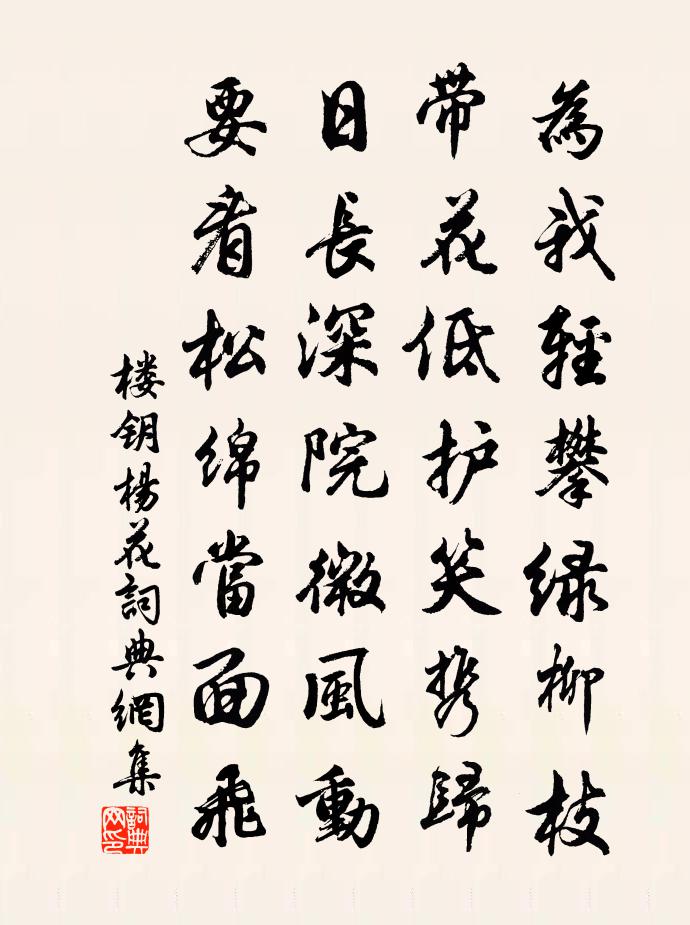 為我輕攀緑柳枝
带花低护笑携歸
日長深院微風動
要看松綿當面飛
楼钥楊花詞典網集
詞典網印